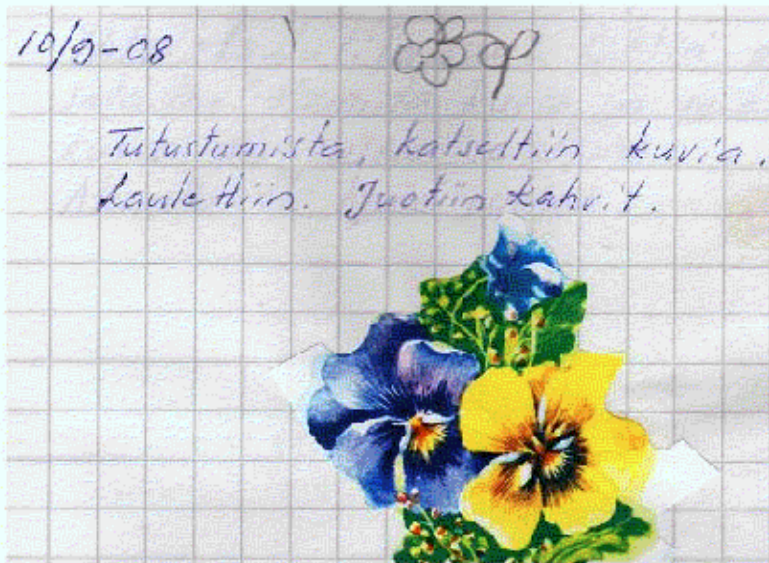 10/9-08
Tutustumista, katseltiin kuvia.
Laulettiin. Juotiin kahvit.